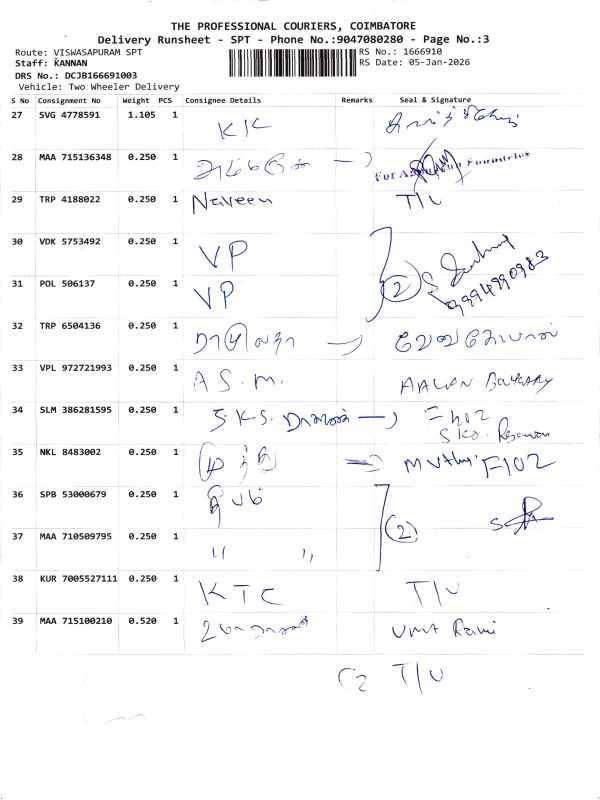 THE PROFESSIONAL COURIERS, COIMBATORE
Delivery Runsheet - SPT - Phone No.:9047080280 - Page No.:3
Route: VISWASAPURAM SPT
RS No.: 1666910
Staff: KANNAN
RS Date: 05-Jan-2026
DRS No.: DCJB166691003
Vehicle: Two Wheeler Delivery
S No Consignment No Weight PCS Consignee Details Remarks Seal & Signature
27 SVG 4778591 1.105 1 KK
28 MAA 715136348 0.250 1
29 TRP 4188022 0.250 1 Naveen T/L
30 VDK 5753492 0.250 1 VP
31 POL 506137 0.250 1 VP (2) 9994990983
32 TRP 6504136 0.250 1
33 VPL 972721993 0.250 1 A S. M.
34 SLM 386281595 0.250 1 S.K.S. F102
35 NKL 8483002 0.250 1 முத்து Muthu F102
36 SPB 53000679 0.250 1
37 MAA 710509795 0.250 1 " " (2)
38 KUR 7005527111 0.250 1 KTC T/L
39 MAA 715100210 0.520 1 Uma Rani
T/L